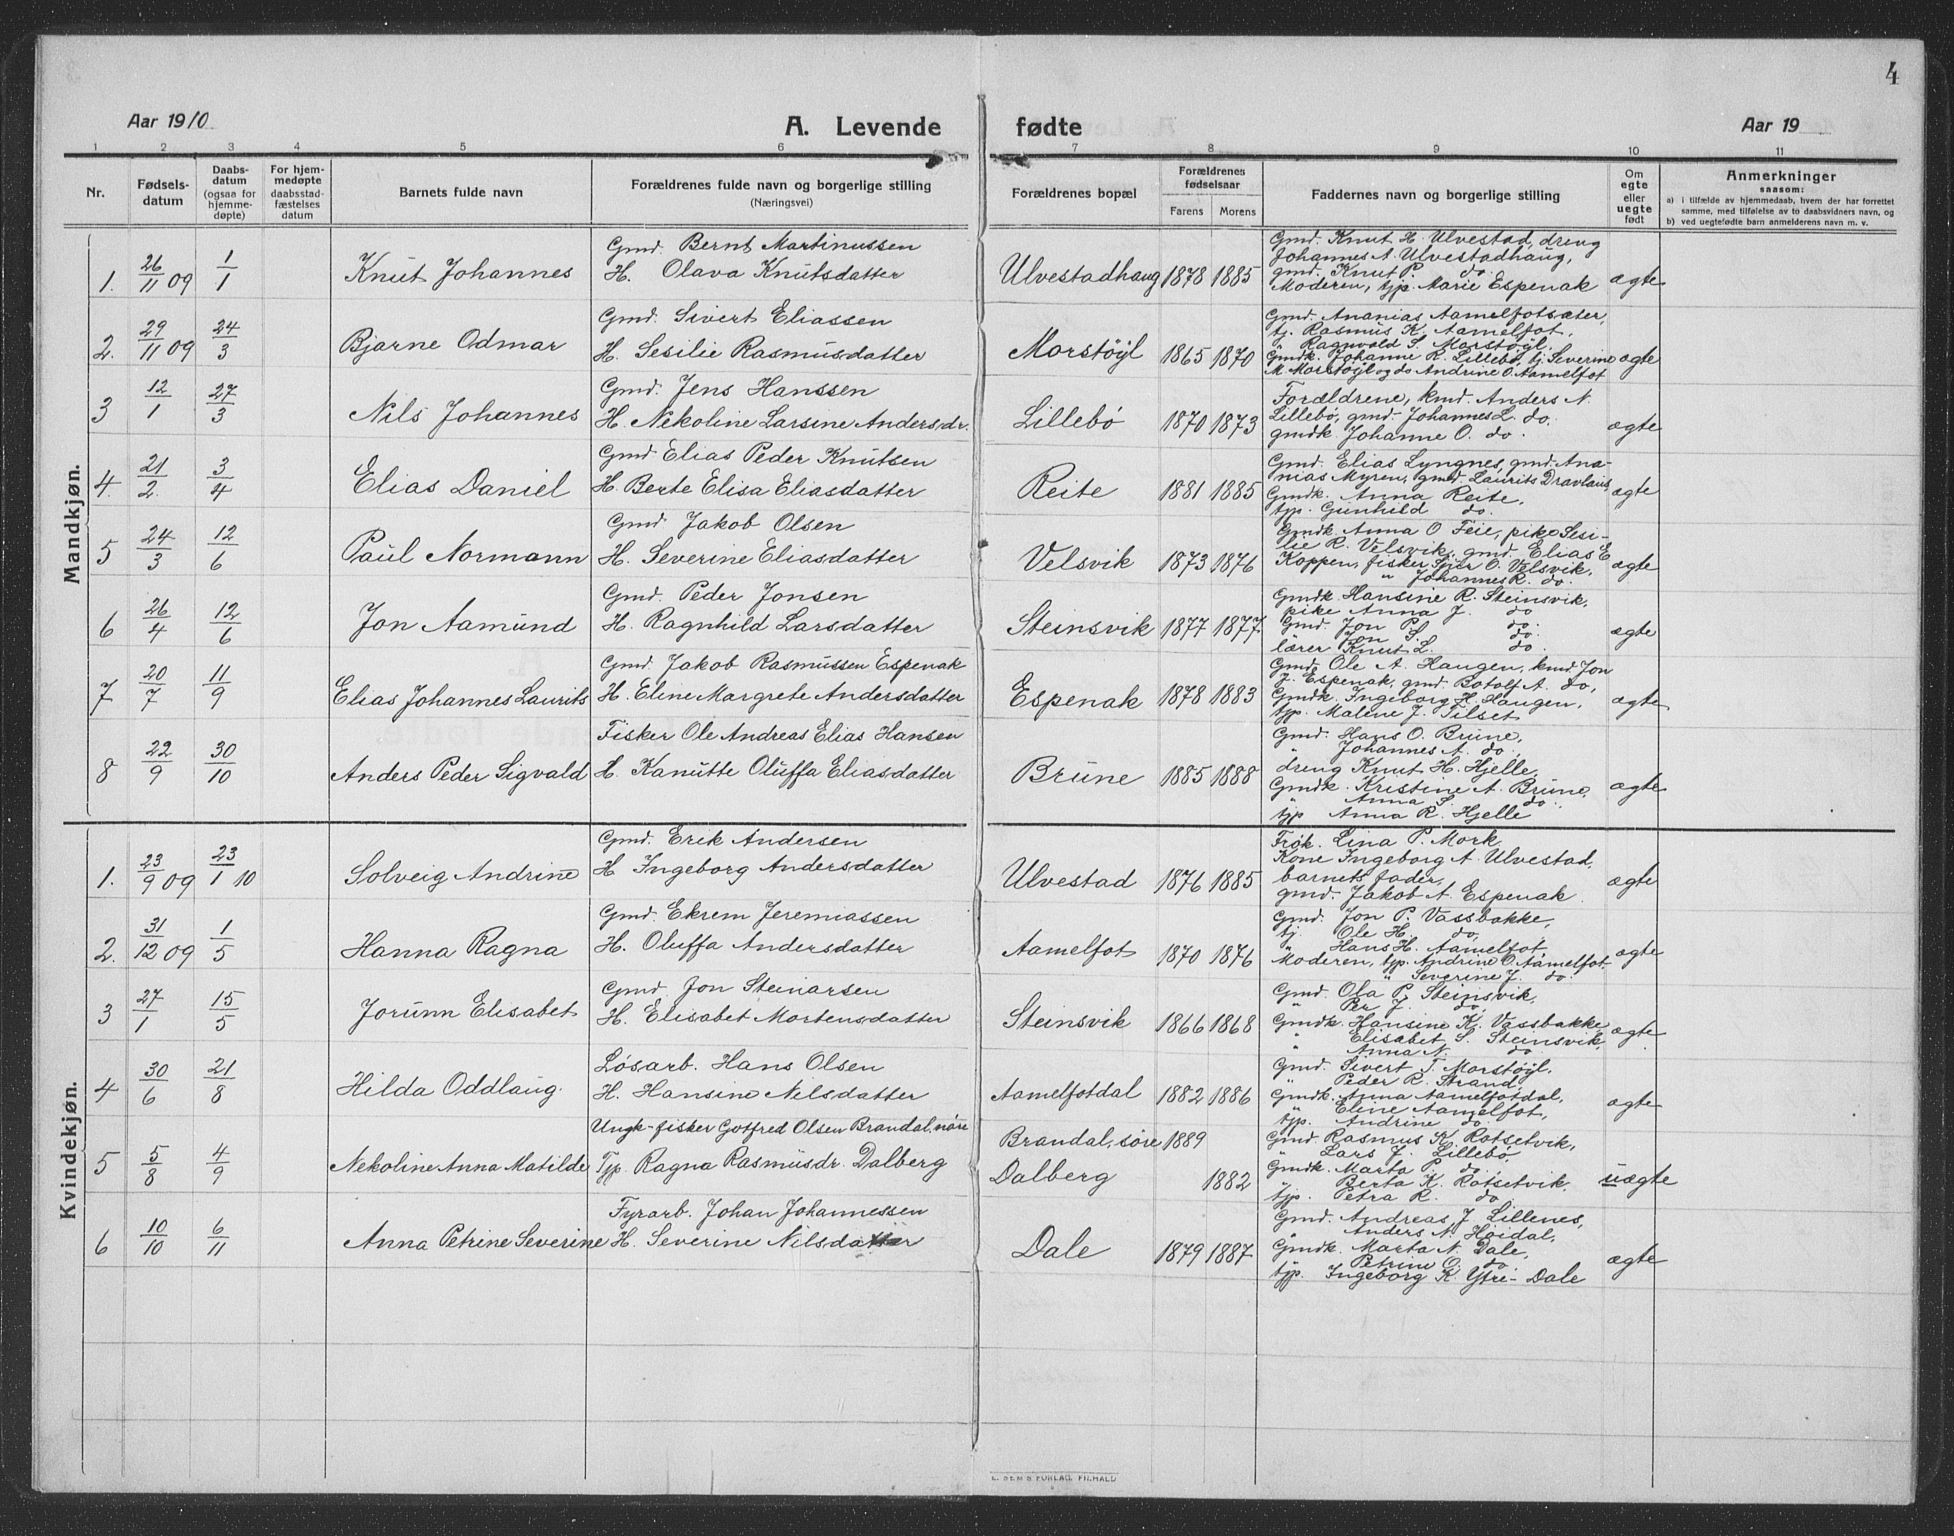 4
Aar 1910
A. Levende fødte
Aar 19
1 2 3 4 5 6 7 8 9 10 11
Nr.
Fødsels-datum
Daabs-datum (ogsaa for hjemme-døpte)
For hjem-medøpte daabsstad-fæstelses datum
Barnets fulde navn
Forældrenes fulde navn og borgerlige stilling
(Næringsvei)
Forældrenes bopæl
Forældrenes fødselsaar
Farens Morens
Faddernes navn og borgerlige stilling
Om egte eller uegte født
Anmerkninger
saasom:
a) i tilfælde av hjemmedaab, hvem der har forrettet
samme, med tilføielse av to daabsvidners navn, og
b) ved uegtefødte barn anmelderens navn m. v.
Mandkjøn.
1. 26/11 09 1/1 Knut Johannes
Gmd. Bernt Martinussen
H. Olava Knutsdatter
Ulvestadhaug 1878 1885
Gmd. Knut H. Ulvestad, dreng
Johannes A. Ulvestadhaug,
gmd. Knut P. do.
Moderen, tjp. Marie Espenak
ægte
2. 29/11 09 24/3 Bjarne Odmar
Gmd. Sivert Eliassen
H. Sesilie Rasmusdatter
Morstøyl 1865 1870
Gmd. Ananias Aamelfotsæter,
tj. Rasmus K. Aamelfot,
" Ragnvald S. Morstøyl.
Gmdk. Johanne R. Lillebø, tj. Severine
M. Morstøyl og do Andrine O. Aamelfot
ægte
3 12/1 27/3 Nils Johannes
Gmd. Jens Hanssen
H. Nekoline Larsine Andersdr.
Lillebø 1870 1873
Forældrene, kmd. Anders N.
Lillebø, gmd. Johannes L. do.
gmdk Johanne O. do.
ægte
4. 21/2. 3/4 Elias Daniel
Gmd Elias Peder Knutsen
H. Berte Elisa Eliasdatter
Reite 1881 1885
Gmd. Elias Lyngnes, gmd. Ana-
nias Myren, gmd. Laurits Dravlaus,
Gmdk. Anna Reite,
tjp. Gunhild do.
ægte
5 24/3 12/6 Paul Normann
Gmd. Jakob Olsen
H. Severine Eliasdatter
Velsvik 1873 1876
Gmdk Anna O Feie, pike Sesi-
lie R. Velsvik, gmd. Elias E
Koppen, fisker O. Velsvik,
" Johannes R. do.
ægte
6 26/4 12/6 Jon Aamund
Gmd. Peder Jonsen
H. Ragnhild Larsdatter
Steinsvik 1877 1877.
Gmdk Hansine R. Steinsvik,
pike Anna J. do
Gmd. Jon P. do.
" Jon S. do.
lærer Knut L. do.
ægte
7 20/7 11/9 Elias Johannes Laurits
Gmd. Jakob Rasmussen Espenak
H. Eline Margrete Andersdatter
Espenak 1878 1883
Gmd. Ole A. Haugen, kmd. Jon
J. Espenak, gmd. Botolf A. do,
Gmdk. Ingeborg H. Haugen,
tjp. Malene J. Tilset
ægte
8 22/9 30/10 Anders Peder Sigvald
Fisker Ole Andreas Elias Hansen
H. Kanutte Oluffa Eliasdatter
Brune 1885 1888
Gmd. Hans O. Brune,
" Johannes A. do.
dreng Knut H. Hjelle,
Gmdk. Kristine A. Brune,
" Anna S. do.
tjp Anna R. Hjelle
ægte
Kvindekjøn.
1. 23/9 09 23/1 10 Solveig Andrine
Gmd. Erik Andersen
H Ingeborg Andersdatter
Ulvestad 1876 1885
Frøk. Lina P. Mork,
Kone Ingeborg A. Ulvestad,
barnets fader,
gmd. Jakob A. Espenak.
ægte
2. 31/12 09 1/5 Hanna Ragna
Gmd. Ekrem Jeremiassen
H. Oluffa Andersdatter
Aamelfot 1870 1876
Gmd. Jon P. Vassbakke,
tj. Ole H. do,
" Hans H. Aamelfot,
Moderen, tjp. Andrine O. Aamelfot,
" Severine J. do.
ægte
3 27/1 15/5 Jorunn Elisabet
Gmd. Jon Steinarsen
H. Elisabet Mortensdatter
Steinsvik 1866 1868
Gmd. Ola P. Steinsvik,
" Per J. do,
Gmdk. Hansine K. Vassbakke,
" Elisabet S. Steinsvik,
" Anna N. do.
ægte
4 30/6 21/8 Hilda Oddlaug.
Løsarb. Hans Olsen
H. Hansine Nilsdatter
Aamelfotdal 1882 1886
Gmd. Sivert T. Morstøyl,
" Peder R. Strand,
Gmdk. Anna Aamelfotdal,
" Eline Aamelfot,
tjp. Andrine do.
ægte
5 5/8 4/9 Nekoline Anna Matilde
Ungk. fisker Gotfred Olsen Brandal, søre
Tjp. Ragna Rasmusdr. Dalberg
Brandal, søre 1889
Dalberg 1882
Gmd. Rasmus K. Rotsetvik,
" Lars J. Lillebø,
Gmdk. Marta P. do.
" Berta K. Rotsetvik,
tjp. Petra R. do.
uægte
6 10/10 6/11 Anna Petrine Severine
Fyrarb. Johan Johannessen
H. Severine Nilsdatter
Dale 1879 1887
Gmd. Andreas J. Lillenes,
" Anders N. Høidal,
Gmdk. Marta N. Dale,
" Petrine O. do.
tjp. Ingeborg K. Ytre-Dale
ægte